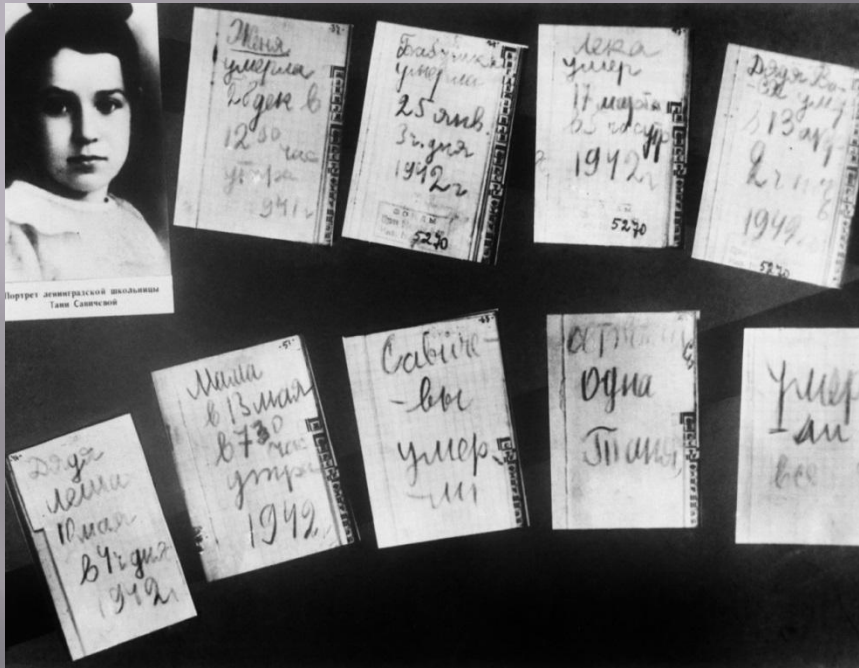 Портрет ленинградской школьницы
Тани Савичевой
Женя
умерла
28 дек в
12 30
час
утра
941 г
Бабушка
умерла
25 янв.
3 ч. дня
1942 г
5270
Лека
умер
17 марта
в 5 час утр
1942 г
5270
Дядя Ва-
умер
13 апр
2 ч
1942 г
5270
Дядя
Леша
10 мая
в 4 ч дня
1942 г
Мама
в 13 мая
в 7 30
час
утра
1942
Савиче-
-вы
умер-
-ли
одна
Таня
умер
-ли
все